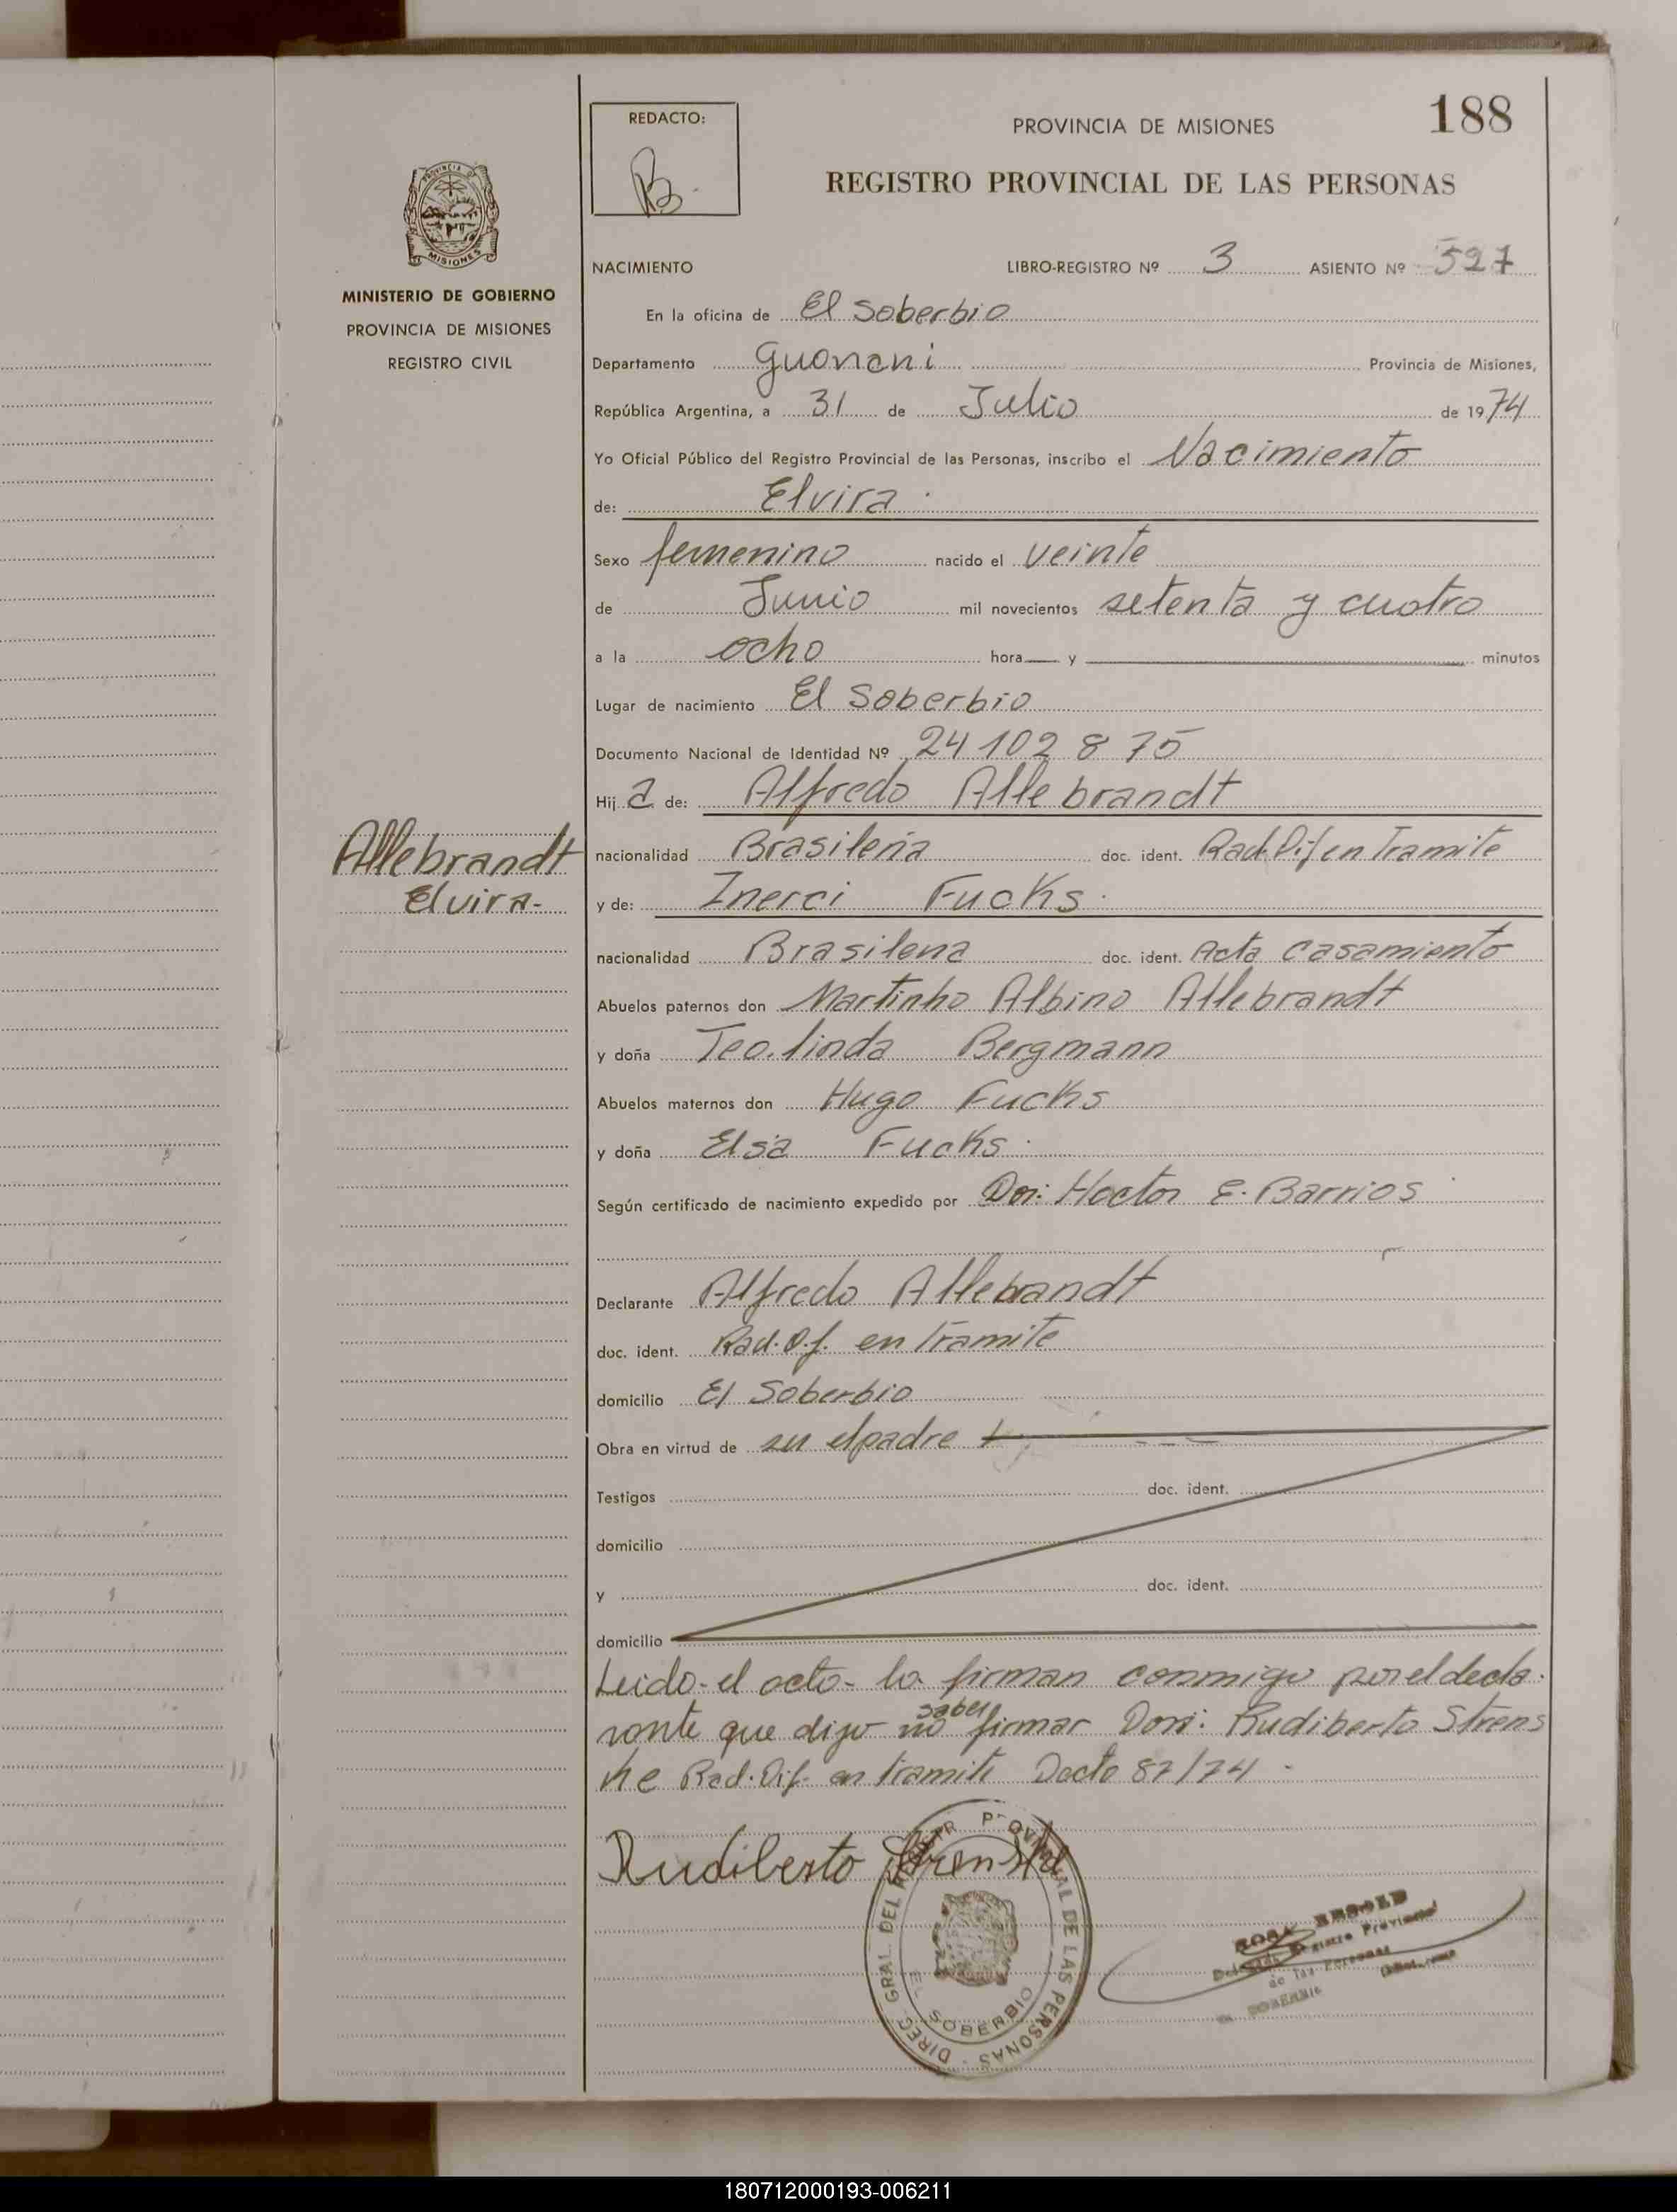 188
REDACTO:
PROVINCIA DE MISIONES
REGISTRO PROVINCIAL DE LAS PERSONAS
PROVINCIA
MISIONES
MINISTERIO DE GOBIERNO
PROVINCIA DE MISIONES
REGISTRO CIVIL
NACIMIENTO LIBRO-REGISTRO Nº 3 ASIENTO Nº 527
En la oficina de El Soberbio
Departamento Guarani Provincia de Misiones,
República Argentina, a 31 de Julio de 1974
Yo Oficial Público del Registro Provincial de las Personas, inscribo el Nacimiento
de: Elvira
Sexo femenino nacido el veinte
de Junio mil novecientos setenta y cuatro
a la ocho hora y minutos
Lugar de nacimiento El Soberbio
Documento Nacional de Identidad Nº 24 102 875
Hija de: Alfredo Allebrandt
Allebrandt
Elvira.-
nacionalidad Brasileña doc. ident. Rad. Dif en Tramite
y de: Inerci Fucks.
nacionalidad Brasilena doc. ident. Acta Casamiento
Abuelos paternos don Martinho Albino Allebrandt
y doña Teo.linda Bergmann
Abuelos maternos don Hugo Fucks
y doña Elsa Fucks.
Según certificado de nacimiento expedido por Don: Hector E. Barrios
Declarante Alfredo Allebrandt
doc. ident. Rad. D.f. en Tramite
domicilio El Soberbio
Obra en virtud de su el padre
Testigos doc. ident.
domicilio
y doc. ident.
domicilio
Leido el acto- lo firman conmigo por el decla-
rante que dijo no saber firmar Don: Rudiberto Strens
ke Rad. Dif. en tramite Decto 87/74 -
Rudiberto Strenske
DIREC. GRAL. DEL REGISTR. PROVINCIAL DE LAS PERSONAS
EL SOBERBIO
ROSA
de las Personas
SOBERBIO
180712000193-006211